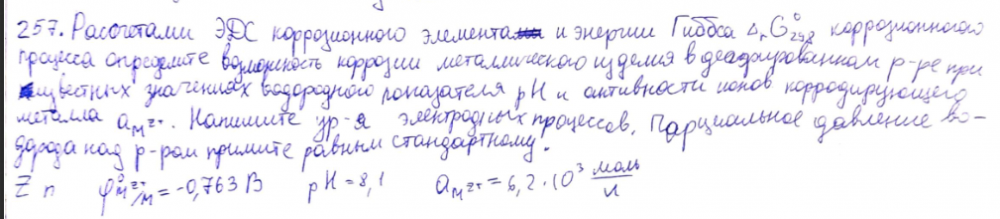 257. Рассчетами ЭДС коррозионного элемента и энергии Гиббса Δ,G°298 коррозионного
процесса определите возможность коррозии металлического изделия в деаэрированном р-ре при
известных значениях водородного показателя pH и активности ионов корродирующего
металла aₘᶻ⁺. Напишите ур-я электродных процессов. Парциальное давление во-
дорода над р-ром примите равным стандартному.
Zn φ°ₘᶻ⁺/ₘ = -0,763 В pH = 8,1 aₘᶻ⁺ = 6,2 · 10³ моль/л